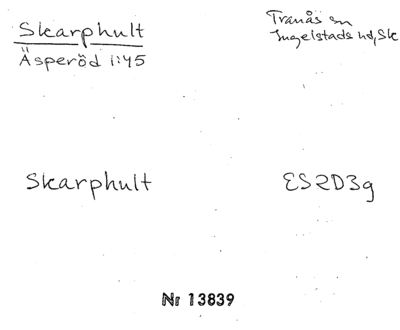 Skarphult
Äsperöd 1:45
Tranås sn
Ingelstads hd, Sk
Skarphult
ES2D3g
Nr 13839